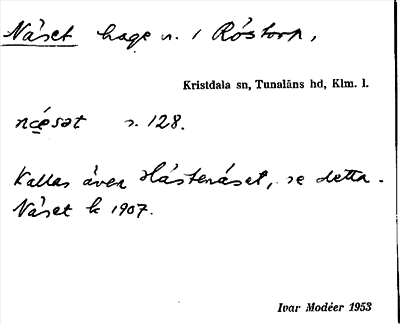 Näset hage n. i Röstorp,
Kristdala sn, Tunaläns hd, Klm. l.
næsət s. 128.
Kallas även Hästenäset, se detta.
Näset k 1907.
Ivar Modéer 1953